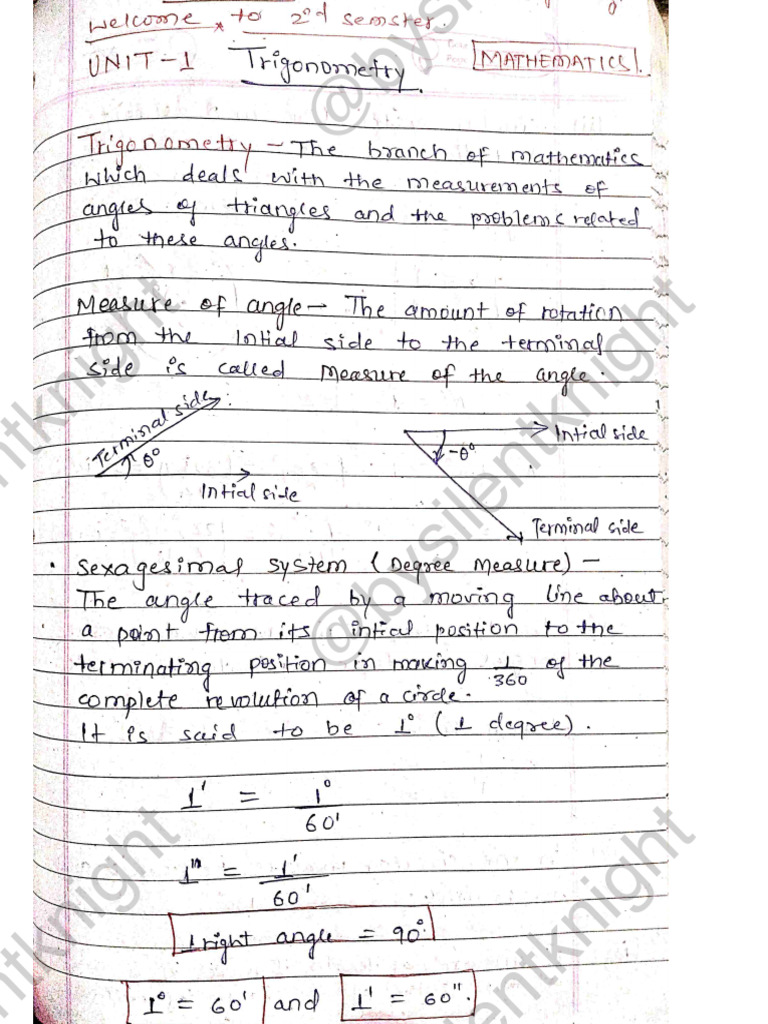 Welcome to 2nd semster.
UNIT-1 Trigonometry. MATHEMATICS.
Trigonometry - The branch of mathematics
which deals with the measurements of
angles of triangles and the problems related
to these angles.
Measure of angle - The amount of rotation
from the Intial side to the terminal
side is called measure of the angle.
Terminal side
θ°
Intial side
Intial side
-θ°
Terminal side
• Sexagesimal system (Degree Measure) -
The angle traced by a moving line about
a point from its intial position to the
terminating position in making 1/360 of the
complete revolution of a circle.
It is said to be 1° (1 degree).
1' = 1°/60'
1''' = 1'/60'
1 right angle = 90°.
1° = 60' and 1' = 60''.
@bysilentknight
@bysilentknight